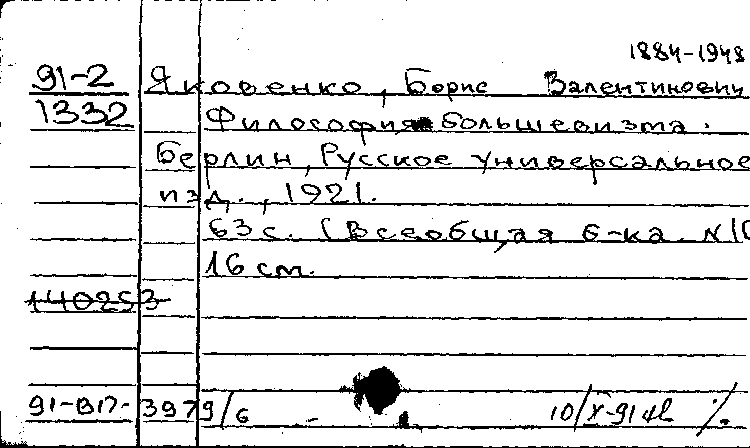 1884-1948
91-2 Яковенко, Борис Валентинович
1332 Философия большевизма.
Берлин, Русское универсальное
изд., 1921.
63 с. (Всеобщая б-ка. N10
16 см.
140253
91-ВП- 3979/6 10/X-91